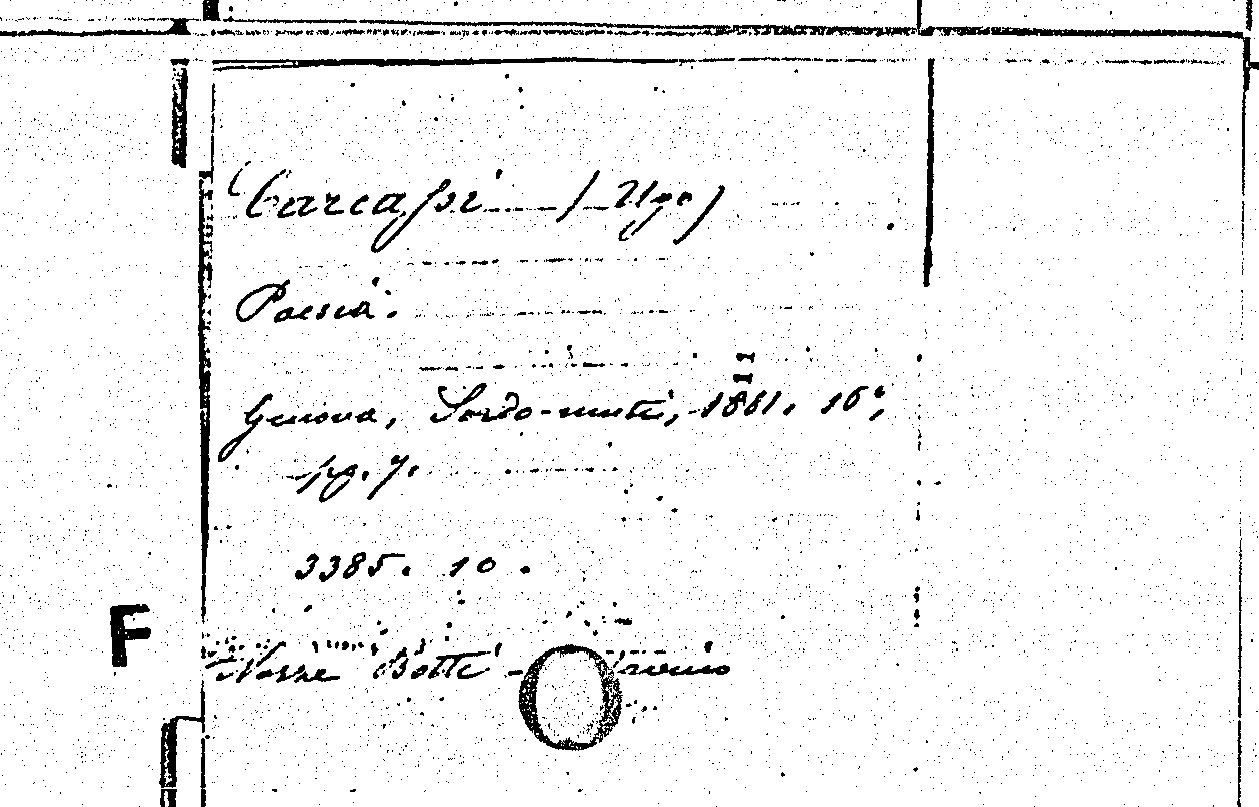 Carcassi (Ugo)
Poesia.
Genova, Sordo-muti, 1861. 16°,
pg. 7.
3385. 10.
F
Nozze Botti -